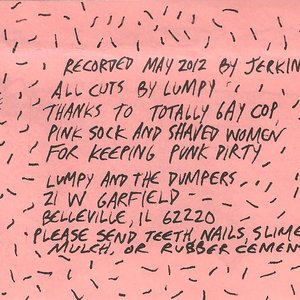 RECORDED MAY 2012 BY JERKIN
ALL CUTS BY LUMPY
THANKS TO TOTALLY GAY COP,
PINK SOCK AND SHAVED WOMEN
FOR KEEPING PUNK DIRTY
LUMPY AND THE DUMPERS
21 W GARFIELD
BELLEVILLE, IL 62220
PLEASE SEND TEETH, NAILS, SLIME
MULCH, OR RUBBER CEMEN